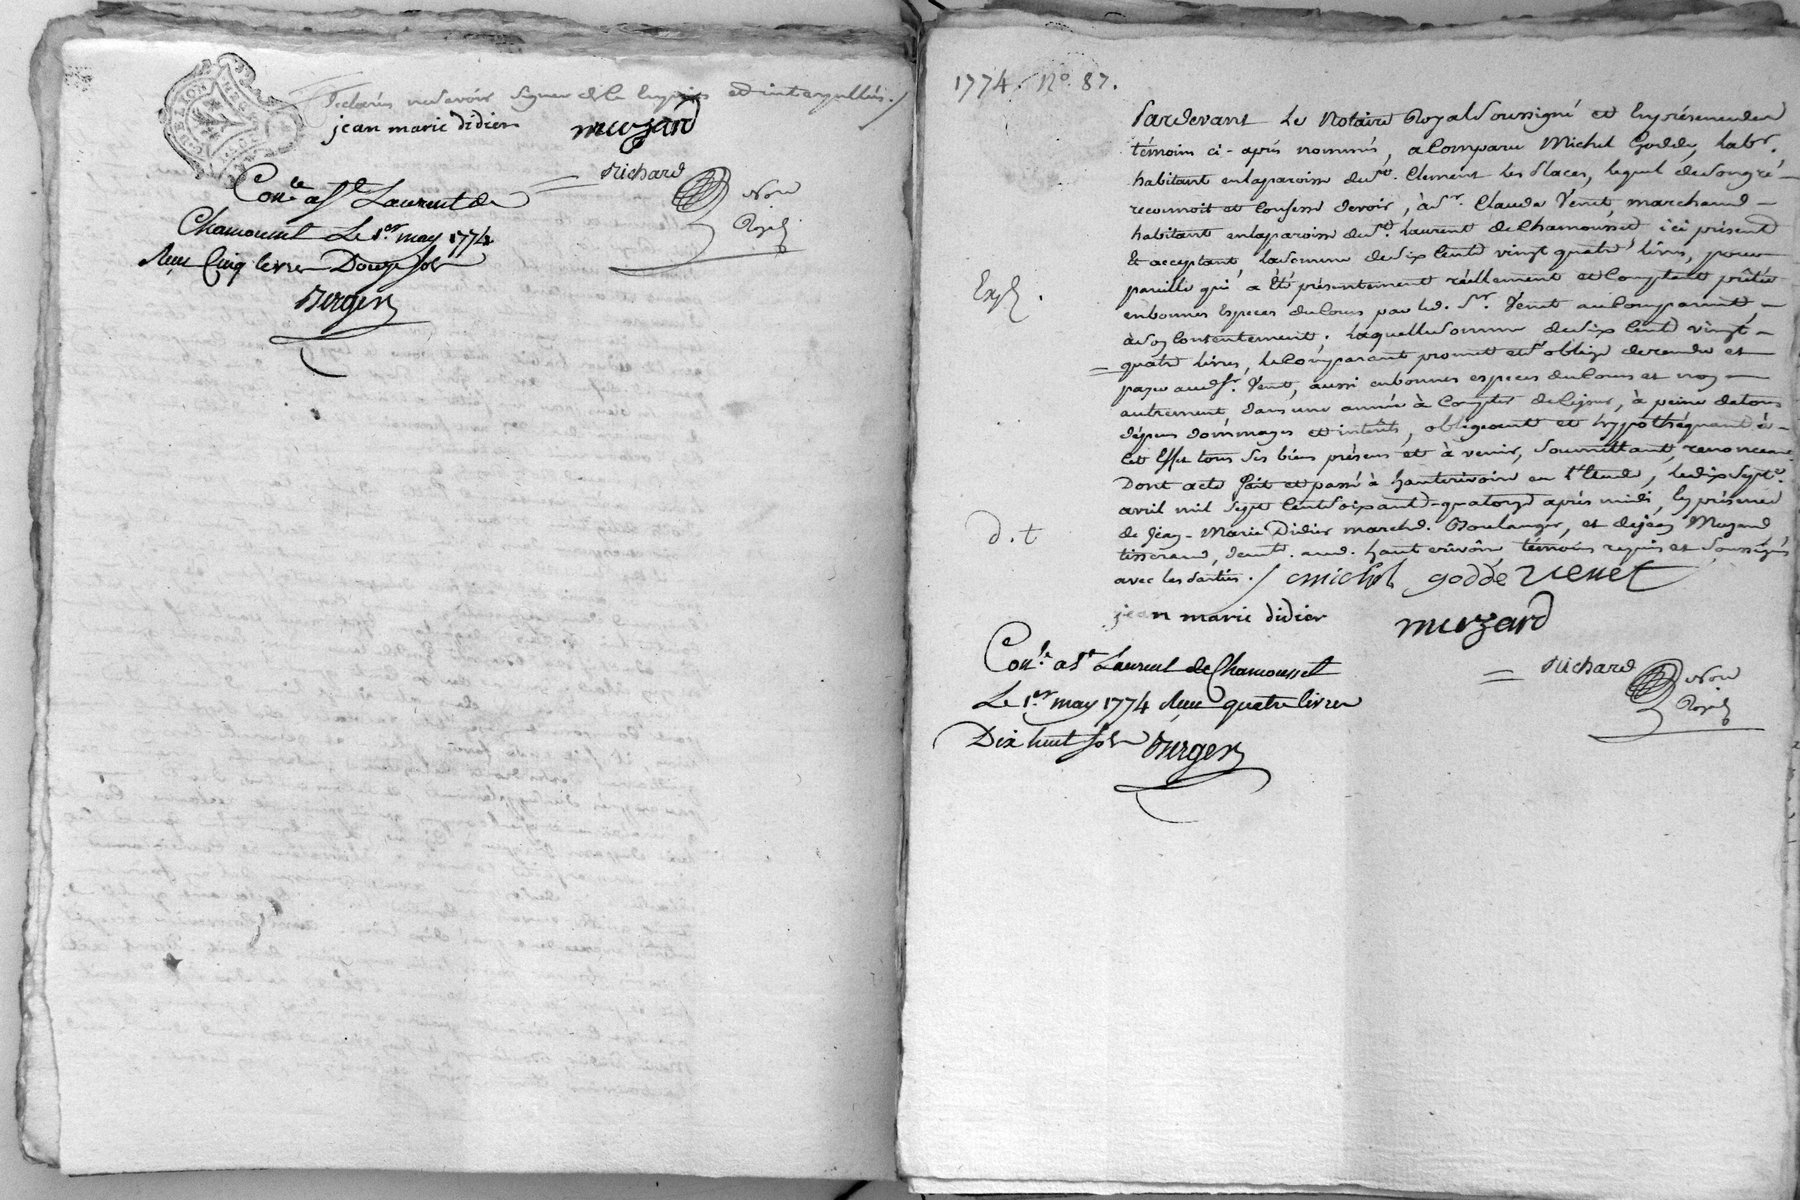 Déclarés ne savoir signer de ce enquis et interpellés./.
jean marie didier muzard
Richard
No.re
Royal
Con.lé a S.t Laurent de
Chamousset Le 1.er may 1774
Reçu Cinq livres Douze sols
Berger
1774. N.o 87.
Pardevant Le Notaire Royal Soussigné et En présence des
témoins ci-après nommés, a Comparu Michel Goddé, lab.r.
habitant en la paroisse de S.t Clement les Places, lequel de Son gré
reconnoit et Confesse devoir, à S.r. Claude Venet, marchand
habitant en la paroisse de S.t. Laurent de Chamousset ici présent
Et acceptant la Somme de Six Cent vingt quatre livres, pour
pareille qui a Eté présentement réellement et Comptant prêtée
en bonnes Especes du Cours par led. S.r. Venet au Comparant,
à Son Consentement; laquelle Somme de Six Cent vingt
quatre livres, le Comparant promet et S'oblige de rendre et
payer aud. S.r. Venet, aussi en bonnes especes du Cours et non
autrement, dans une année à Compter de Ce jour, à peine de tous
dépens dommages et intérêts, obligeant et hypothéquant à
Cet Effet tous Ses biens présens et à venir, Soumettant, renonceant
Dont acte fait et passé à hauterivoire en l'Etude, le dix Sept.e
avril mil Sept Cent Soixante-quatorze après midi, En présence
de Jean-Marie Didier march.d. Boulanger, et de jean Muzard
tisserand, dem.t. aud. hauterivoire, témoins requis et Soussignés
avec les Parties./.
michel goddé Venet
jean marie didier muzard
Richard
No.re
Royal
Exp.
d. t
Con.lé a S.t Laurent de Chamousset
Le 1.er may 1774 Reçu quatre livres
Dix huit sols Berger